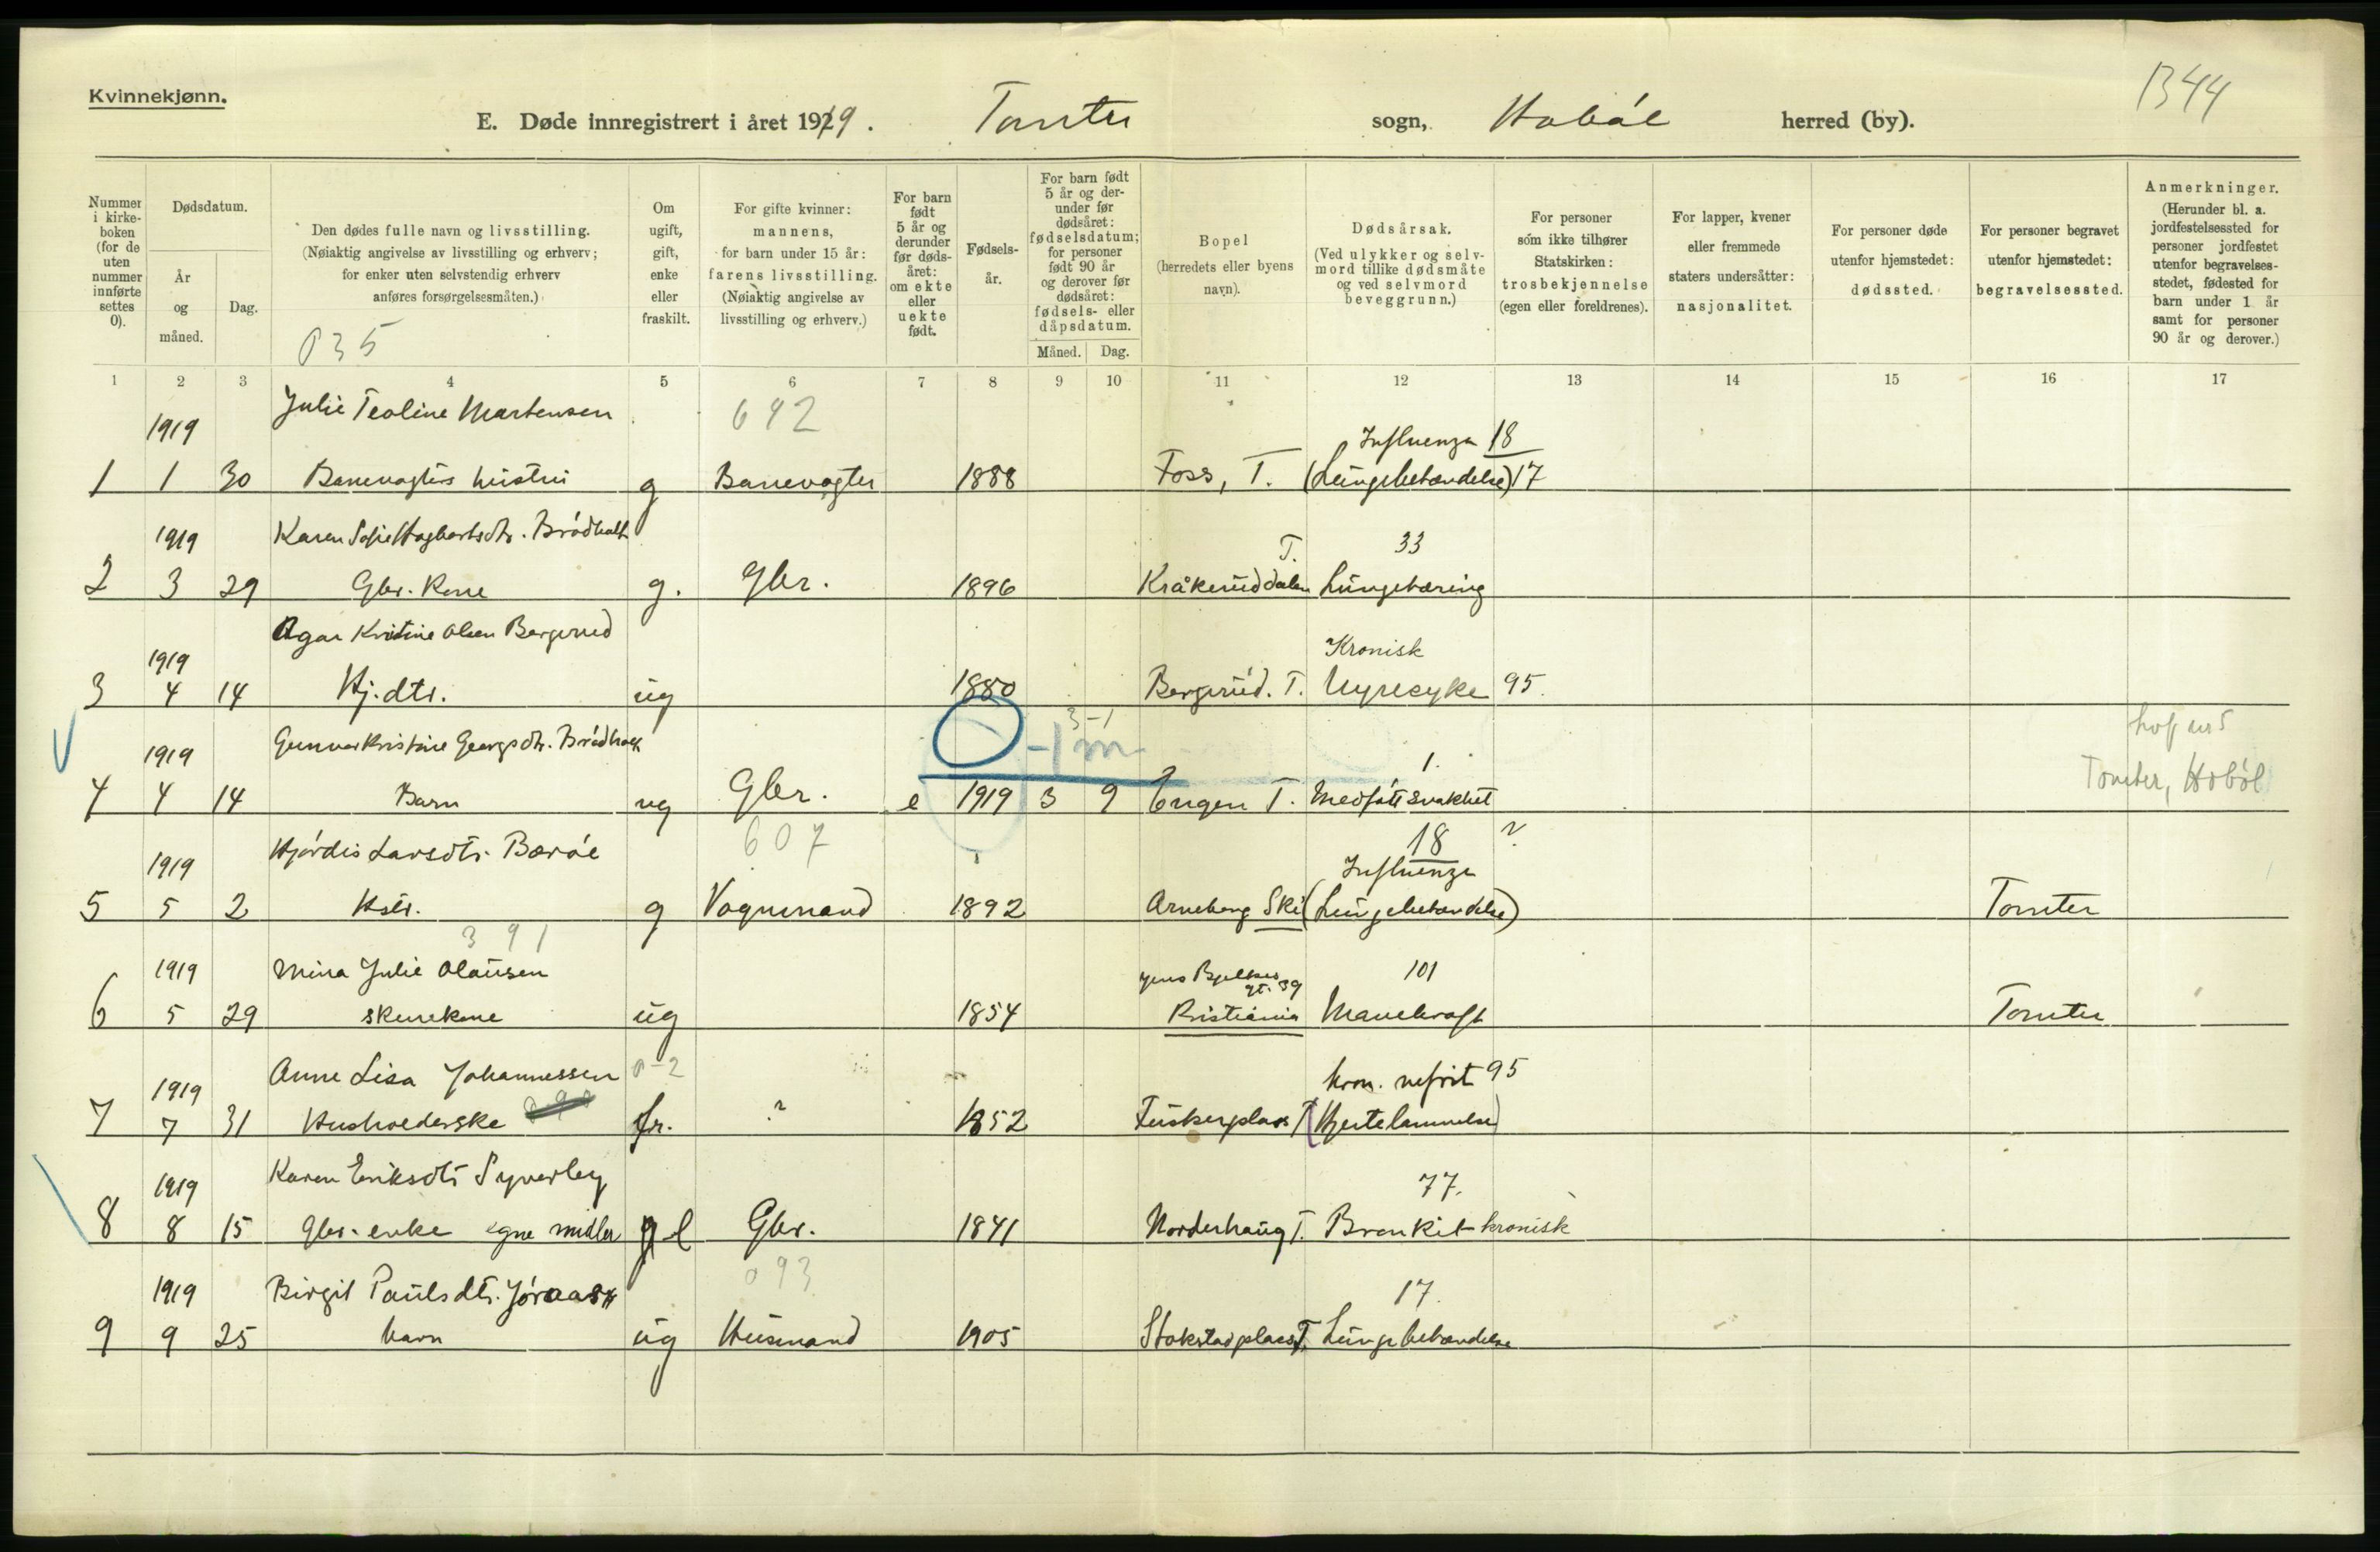 Kvinnekjønn.
1344
E. Døde innregistrert i året 1919. Tomter sogn, Hobøl herred (by).
Nummer i kirke-boken (for de uten nummer innførte settes 0).
Dødsdatum.
År og måned.
Dag.
Den dødes fulle navn og livsstilling.
(Nøiaktig angivelse av livsstilling og erhverv;
for enker uten selvstendig erhverv
anføres forsørgelsesmåten.)
035
Om ugift, gift, enke eller fraskilt.
For gifte kvinner:
mannens,
for barn under 15 år:
farens livsstilling.
(Nøiaktig angivelse av
livsstilling og erhverv.)
For barn født 5 år og derunder før døds-året: om ekte eller uekte født.
Fødsels-år.
For barn født 5 år og der-under før dødsåret: fødselsdatum; for personer født 90 år og derover før dødsåret: fødsels- eller dåpsdatum.
Måned. Dag.
Bopel
(herredets eller byens
navn).
Dødsårsak.
(Ved ulykker og selv-
mord tillike dødsmåte
og ved selvmord
beveggrunn.)
For personer
som ikke tilhører
Statskirken:
trosbekjennelse
(egen eller foreldrenes).
For lapper, kvener
eller fremmede
staters undersåtter:
nasjonalitet.
For personer døde
utenfor hjemstedet:
dødssted.
For personer begravet
utenfor hjemstedet:
begravelsessted.
Anmerkninger.
(Herunder bl. a.
jordfestelsessted for
personer jordfestet
utenfor begravelses-
stedet, fødested for
barn under 1 år
samt for personer
90 år og derover.)
1 2 3 4 5 6 7 8 9 10 11 12 13 14 15 16 17
Julie Teoline Martensen 642
1919 Influenza 18
1 1 30 Banevogters hustru g Banevogter 1888 Foss, T. (Lungebetændelse) 17
1919 Karen Sofie Hagbartsdtr. Brødholt T. 33
2 3 29 Gbr. Kone g. Gbr. 1896 Kråkeruddalen Lungetæring
Agar Kristine Olsen Bergerud
1919 Kronisk
3 4 14 Hj. dtr. ug 1880 Bergerud. T. Nyresyke 95.
0 - 1 m 3-1
1919 Gunvor Kristine Georgsdtr. Brødholt 1. Tomter, Hobøl
4 4 14 Barn ug Gbr. e 1919 3 9 Engen T. Medfött svakhet
607 18 ?
1919 Hjørdis Larsdtr. Bærøe Influenza
5 5 2 Hstr. g Vognmand 1892 Arneberg Ski (Lungebetændelse) Tomter
391
1919 Mina Julie Olausen Jens Bjelkes gt. 39 101
6 5 29 ug 1854 Kristiania Mavekræft Tomter
Anne Lisa Johannessen 0-2 kron. nefrit 95
1919
7 7 31 Husholderske fr. ? 1852 T (Hjertelammelse)
1919 Karen Eriksdtr Syverley 77.
8 8 15 Gbr. enke egne midler e Gbr. 1841 Norderhaug T. Bronkit kronisk
093
1919 Birgit Paulsdtr. 17.
9 9 25 barn ug Husmand 1905 Stokstadplass T. Lungebetændelse